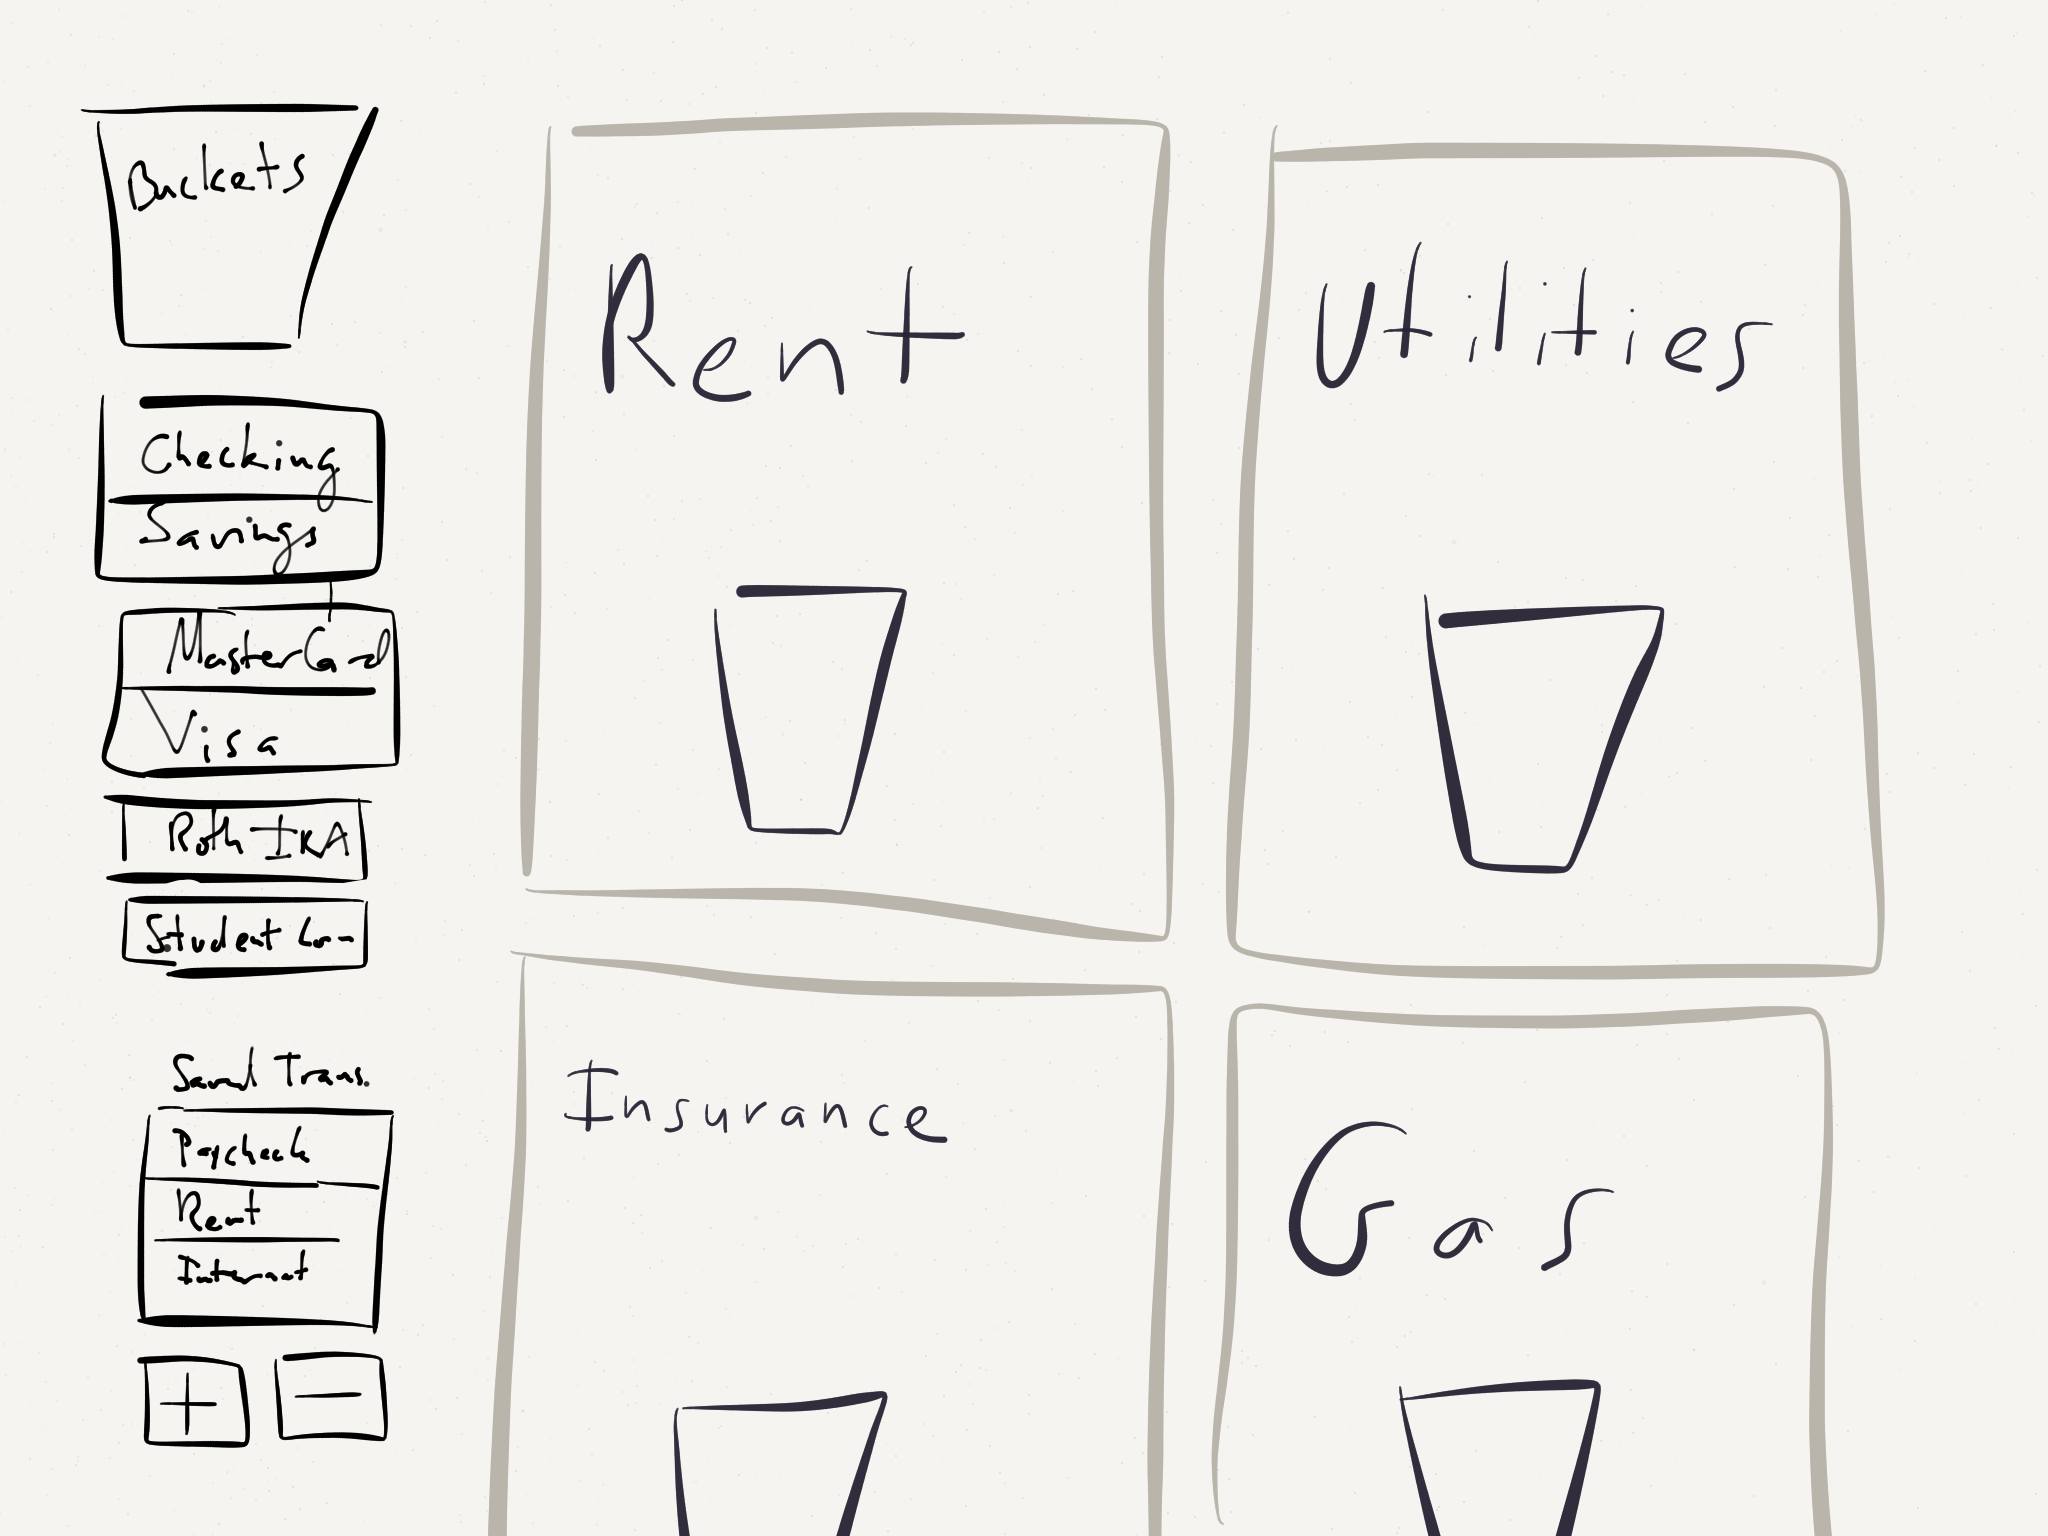 Buckets
Checking
Savings
MasterCard
Visa
Roth IRA
Student Loan
Saved Trans.
Paycheck
Rent
Internet
+ −
Rent
Utilities
Insurance
Gas